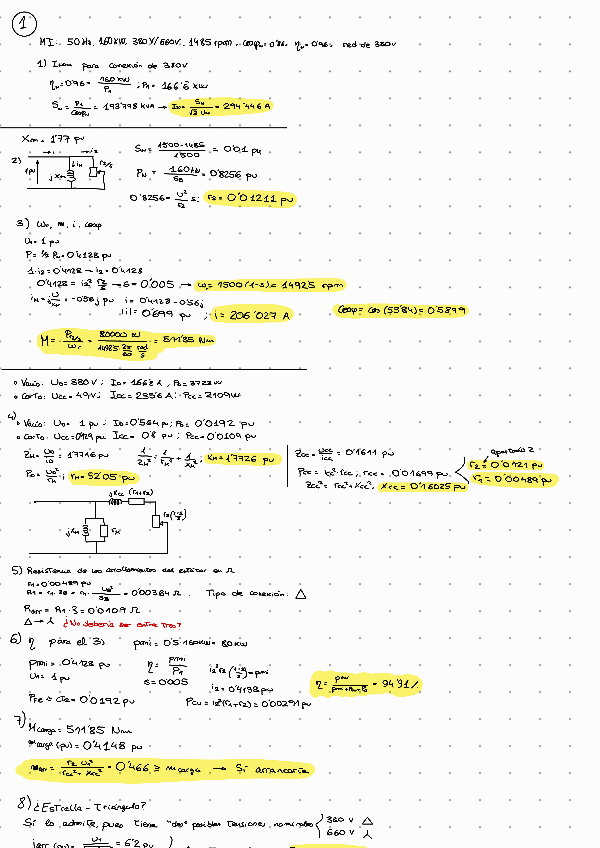 1
MI: 50 Hz, 160 KW, 380 V/660V, 1485 rpm, cosφn = 0'86, ηn = 0'96, red de 380V
1) Inom para conexión de 380V
ηn = 0'96 = 160 KW / P1 ; P1 = 166'6 KW
Sn = P1 / cosφn = 193'798 KVA → In = Sn / √3 Un = 294'446 A
Xm = 1'77 pu
2)
1 pu
jXm
r2/s
Sn = 1500-1485 / 1500 = 0'01 pu
Pn = 160KW / SB = 0'8256 pu
0'8256 = U² / r2 s; r2 = 0'01211 pu
3) ωr, m, i, cosφ
U1 = 1 pu
P = ½ Pn = 0'4128 pu
1·i2 = 0'4128 → i2 = 0'4128
0'4128 = i2² r2/s → s = 0'005 → ωr = 1500 (1-s) = 1492'5 rpm
= -0'56j pu i = 0'4128 - 0'56j
|i| = 0'699 pu ; i = 206'027 A
cosφ = cos (53'84) = 0'5899
M = / ωr = 80000 W / 1492'5 2π/60 rad/s = 511'85 Nm
• Vacío: U0 = 380 V; I0 = 166'2 A, P0 = 3723 W
• Corto: Ucc = 49V; Icc = 235'6 A; Pcc = 2109W
4)
• Vacío: U0 = 1 pu; I0 = 0'564 pu; P0 = 0'0192 pu
• Corto: Ucc = 0'129 pu; Icc = 0'8 pu; Pcc = 0'0109 pu
ZM = U0 / i0 = 1'7716 pu 1/ZM² = 1/rM² + 1/XM² ; XM = 1'7726 pu
P0 = U0² / rM ; rM = 52'05 pu
Zcc = Ucc / icc = 0'1611 pu
Pcc = icc² · rcc ; rcc = 0'01699 pu
Zcc² = rcc² + Xcc² ; Xcc = 0'16025 pu
apartado 2
r2 = 0'0121 pu
r1 = 0'00489 pu
jXcc (r1+r2)
jXM
5) Resistencia de los arrollamientos del estator en Ω
r1 = 0'00489 pu
= 0'00384 Ω. Tipo de conexión: △
= R1 · 3 = 0'0109 Ω
¿No debería ser entre tres?
6) η para el 3) pmi = 0'5 · 160KW = 80 KW
pmi = 0'4128 pu
U1 = 1 pu
η = pmi / P1
s = 0'005
i2² r2 (1-s / s) = pmi
i2 = 0'4138 pu
= 0'0192 pu
Pcu = i2² (r1+r2) = 0'00291 pu
= 94'91 %
7)
Mcarga = 511'85 Nm
mcarga (pu) = 0'4148 pu
marr = r2 U1² / rcc² + Xcc² = 0'466 ≥ mcarga → Si arrancaría
8) ¿Estrella - Triángulo?
Si lo admite, pues tiene "dos" posibles tensiones nominales
380 V △
660 V
= 6'2 pu